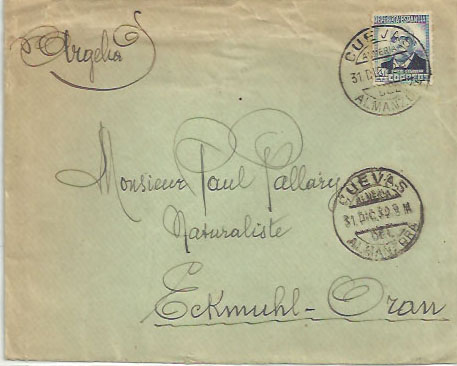 Argelia
REPUBLICA ESPAÑOLA
CORREOS
CUEVAS
ALMERIA
31 DIC
DEL
ALMANZORA
Monsieur Paul Pallary
Naturaliste
Eckmuhl-Oran
CUEVAS
ALMERIA
31 DIC 30 8 M
DEL
ALMANZORA